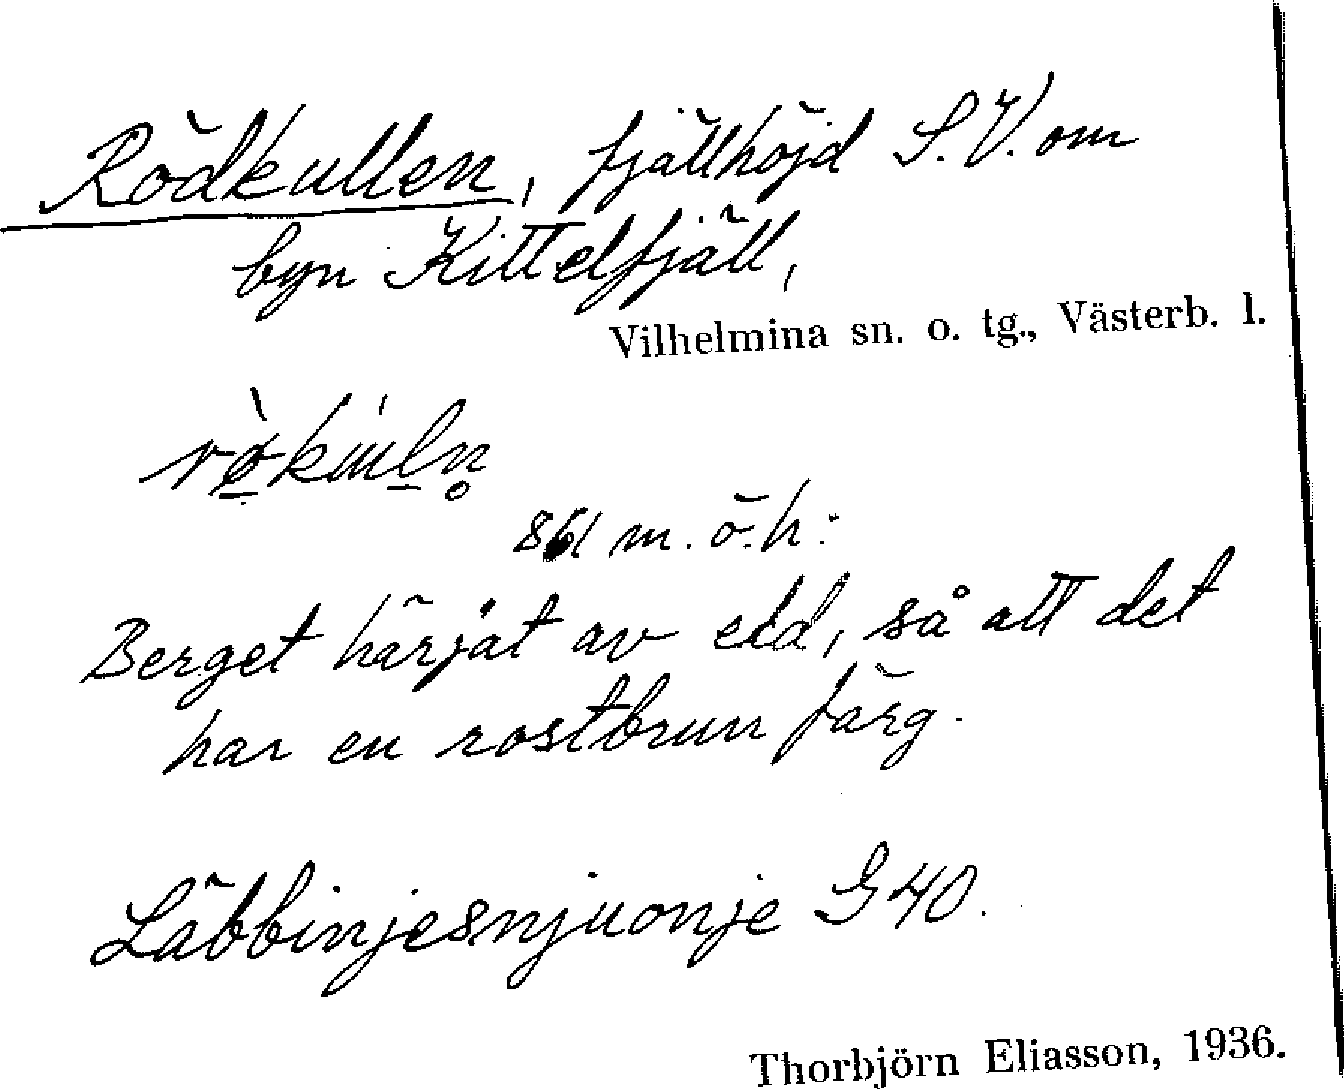 Rödkullen, fjällhöjd S.V. om
byn Kittelfjäll,
Vilhelmina sn. o. tg., Västerb. l.
861 m. ö. h.
Berget härjat av eld, så att det
har en rostbrun färg.
Läbbinjesnjuonje G40.
Thorbjörn Eliasson, 1936.